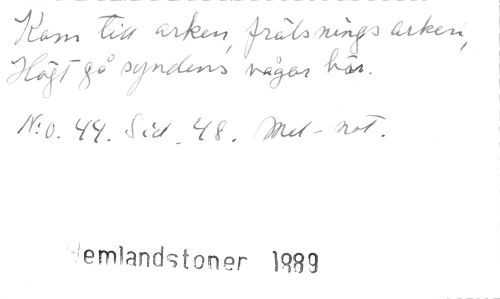 Kom till arken, frälsnings arken,
Högt gå syndens vågor här.
N:o. 44. Sid. 48. Mel-not.
Hemlandstoner 1889